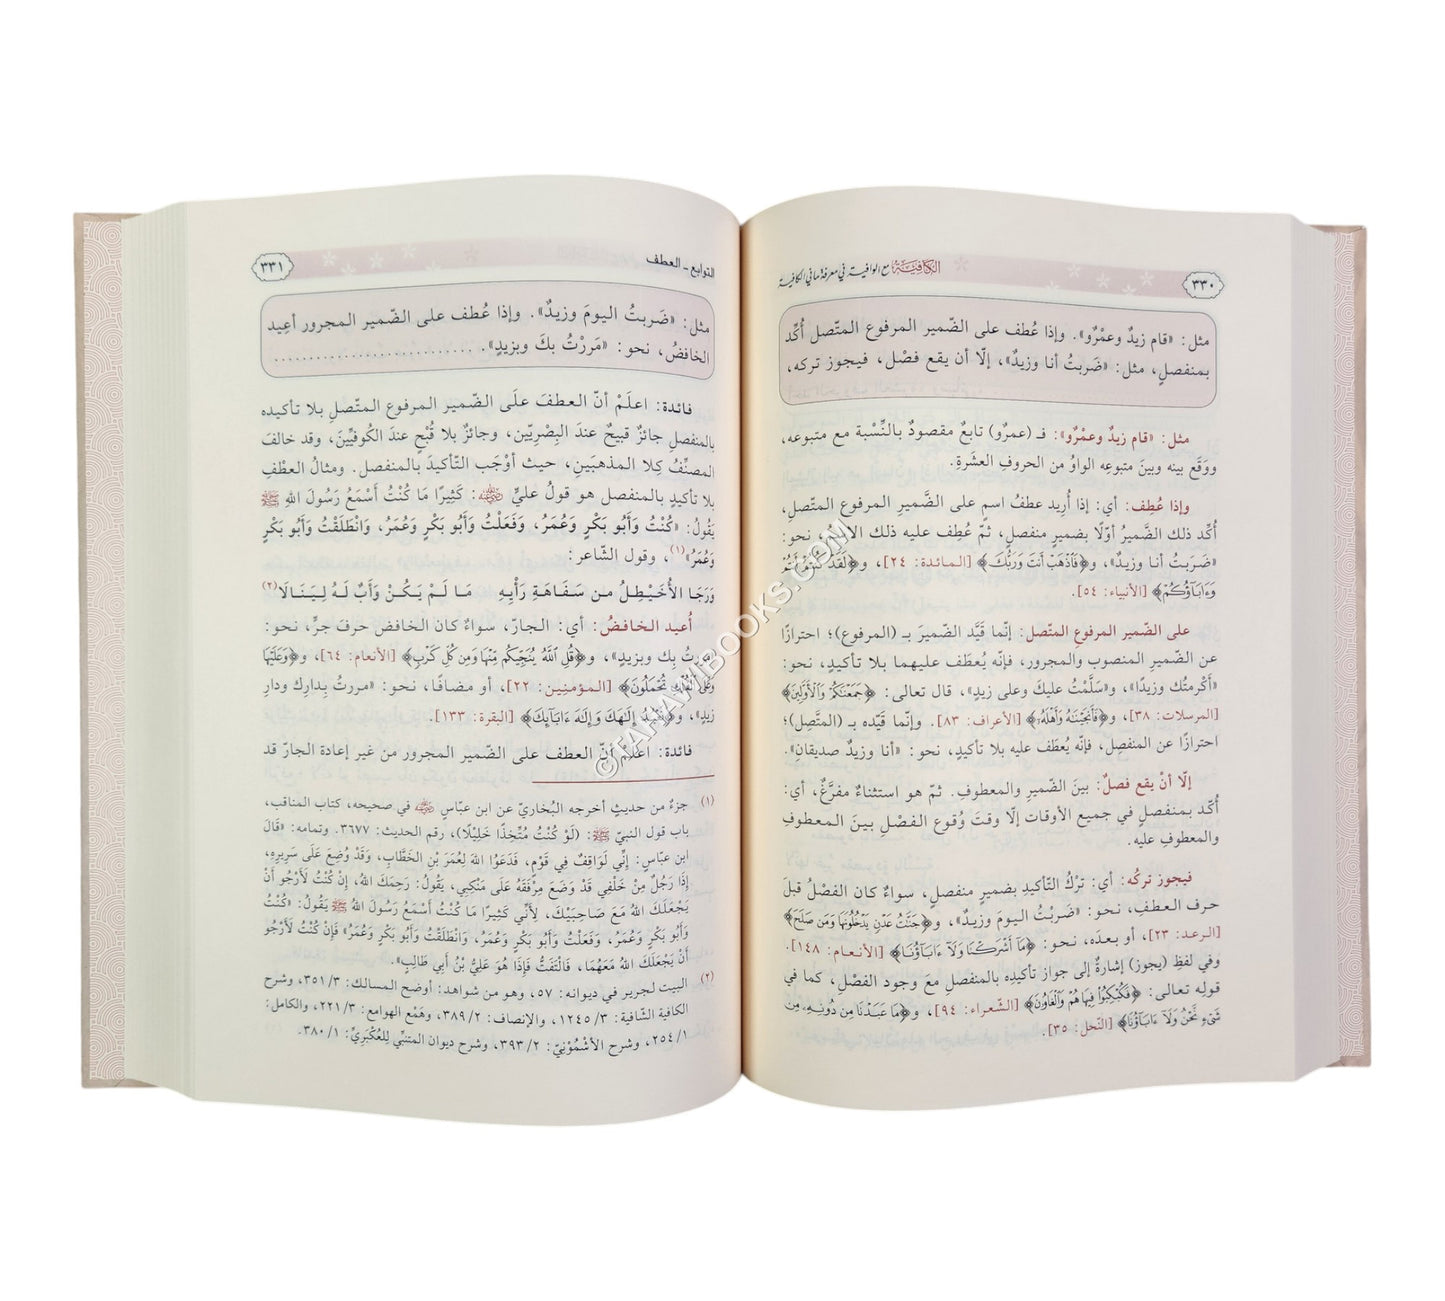 ٣٣٠
الكافية مع الوافية في معرفة ما في الكافية
مثل: «قام زيدٌ وعمْرٌو». وإذا عُطف على الضّمير المرفوع المتّصل أُكِّد
بمنفصلٍ، مثل: «ضَربتُ أنا وزيدٌ»، إلّا أن يقع فصْل، فيجوز تركه،
مثل: «قام زيدٌ وعمْرٌو»: فـ (عمرٌو) تابعٌ مقصودٌ بالنِّسْبة مع متبوعه،
ووَقَع بينه وبينَ متبوعِه الواوُ من الحروفِ العشَرةِ.
وإذا عُطِف: أي: إذا أُريد عطفُ اسمٍ على الضَّميرِ المرفوع المتّصلِ،
أُكِّد ذلك الضَّميرُ أوّلًا بضميرٍ منفصلٍ، ثمّ عُطِف عليه ذلك نحو:
«ضَرَبتُ أنا وزيدٌ»، و﴿فَٱذْهَبْ أَنتَ وَرَبُّكَ﴾ [المائدة: ٢٤]، و﴿لَقَدْ كُنتُمْ أَنتُمْ
وَءَابَآؤُكُمْ﴾ [الأنبياء: ٥٤].
على الضّمير المرفوعِ المتّصل: إنّما قيَّد الضّميرَ بـ (المرفوع)؛ احترازًا
عن الضّميرِ المنصوب والمجرور، فإنّه يُعطَف عليهما بلا تأكيدٍ، نحو:
«أكْرمتُك وزيدًا»، و«سَلَّمْتُ عليكَ وعلى زيدٍ»، قال تعالى: ﴿جَمَعْنَٰكُمْ وَٱلْأَوَّلِينَ﴾
[المرسلات: ٣٨]، و﴿فَأَنجَيْنَٰهُ وَأَهْلَهُۥ﴾ [الأعراف: ٨٣]. وإنّما قيّده بـ (المتّصل)؛
احترازًا عن المنفصِل، فإنّه يُعطَف عليه بلا تأكيدٍ، نحو: «أنا وزيدٌ صديقانِ».
إلّا أنْ يقع فصلٌ: بينَ الضّميرِ والمعطوفِ. ثمّ هو استثناءٌ مفرَّغٌ، أي:
أُكّد بمنفصلٍ في جميع الأوقات إلّا وقتَ وُقوع الفَصْل بينَ المعطوفِ
والمعطوفِ عليه.
فيجوز تركُه: أي: ترْكُ التّأكيدِ بضميرٍ منفصلٍ، سواءٌ كان الفصْلُ قبلَ
حرف العطفِ، نحو: «ضَربْتُ اليومَ وزيدٌ»، و﴿جَنَّٰتُ عَدْنٍ يَدْخُلُونَهَا وَمَن صَلَحَ﴾
[الرعد: ٢٣]، أو بعدَه، نحو: ﴿مَآ أَشْرَكْنَا وَلَآ ءَابَآؤُنَا﴾ [الأنعام: ١٤٨].
وفي لفظِ (يجوز) إشارةٌ إلى جواز تأكيدِه بالمنفصلِ معَ وجود الفصْل، كما في
قوله تعالى: ﴿فَكُبْكِبُوا۟ فِيهَا هُمْ وَٱلْغَاوُۥنَ﴾ [الشعراء: ٩٤]، و﴿مَا عَبَدْنَا مِن دُونِهِۦ مِن
شَىْءٍ نَّحْنُ وَلَآ ءَابَآؤُنَا﴾ [النّحل: ٣٥].
التوابع - العطف
٣٣١
مثل: «ضَربتُ اليومَ وزيدٌ». وإذا عُطف على الضّمير المجرور أعِيد
الخافضُ، نحو: «مَررْتُ بكَ وبزيدٍ».
فائدة: اعلَمْ أنّ العطفَ علَى الضّميرِ المرفوع المتّصلِ بلا تأكيده
بالمنفصلِ جائزٌ قبيحٌ عندَ البِصْريّين، وجائزٌ بلا قُبْحٍ عندَ الكُوفيِّينَ، وقد خالفَ
المصنِّفُ كِلا المذهبَينِ، حيث أوْجَب التّأكيدَ بالمنفصل. ومثالُ العطْفِ
بلا تأكيدٍ بالمنفصل هو قولُ عليٍّ رضي الله عنه: كَثِيرًا مَا كُنْتُ أَسْمَعُ رَسُولَ اللهِ ﷺ
يَقُولُ: «كُنْتُ وَأَبُو بَكْرٍ وَعُمَرُ، وَفَعَلْتُ وَأَبُو بَكْرٍ وَعُمَرُ، وَانْطَلَقْتُ وَأَبُو بَكْرٍ
وَعُمَرُ»(١)، وقول الشّاعر:
وَرَجَا الأُخَيْطِلُ من سَفَاهَةِ رَأْيِهِ مَا لَمْ يَكُنْ وَأَبٌ لَهُ لِيَنَالَا(٢)
أُعيد الخافضُ: أي: الجارّ، سواءٌ كان الخافض حرفَ جرٍّ، نحو:
مررتُ بِك وبزيدٍ»، و﴿قُلِ ٱللَّهُ يُنَجِّيكُم مِّنْهَا وَمِن كُلِّ كَرْبٍ﴾ [الأنعام: ٦٤]، و﴿وَعَلَيْهَا
وَعَلَى ٱلْفُلْكِ تُحْمَلُونَ﴾ [المؤمنين: ٢٢]، أو مضافًا، نحو: «مررتُ بِدارِك ودارِ
زيدٍ»، و﴿نَعْبُدُ إِلَٰهَكَ وَإِلَٰهَ ءَابَآئِكَ﴾ [البقرة: ١٣٣].
فائدة: اعلَم أنّ العطف على الضّمير المجرور من غير إعادة الجارّ قد
(١) جزءٌ من حديثٍ أخرجه البُخاريّ عن ابن عبّاس رضي الله عنه في صحيحه، كتاب المناقب،
باب قول النبيّ ﷺ: (لَوْ كُنْتُ مُتَّخِذًا خَلِيْلًا)، رقم الحديث: ٣٦٧٧. وتمامه: «قَالَ
ابن عبّاس: إنِّي لَوَاقِفٌ فِي قَوْمٍ، فَدَعَوُا اللهَ لِعُمَرَ بْنِ الخَطَّابِ، وَقَدْ وُضِعَ عَلَى سَرِيرِهِ،
إِذَا رَجُلٌ مِنْ خَلْفِي قَدْ وَضَعَ مِرْفَقَهُ عَلَى مَنْكِبِي، يَقُولُ: رَحِمَكَ اللهُ، إِنْ كُنْتُ لَأَرْجُو أَنْ
يَجْعَلَكَ اللهُ مَعَ صَاحِبَيْكَ، لِأَنِّي كَثِيرًا مَا كُنْتُ أَسْمَعُ رَسُولَ اللهِ ﷺ يَقُولُ: «كُنْتُ
وَأَبُو بَكْرٍ وَعُمَرُ، وَفَعَلْتُ وَأَبُو بَكْرٍ وَعُمَرُ، وَانْطَلَقْتُ وَأَبُو بَكْرٍ وَعُمَرُ» فَإِنْ كُنْتُ لَأَرْجُو
أَنْ يَجْعَلَكَ اللهُ مَعَهُمَا، فَالْتَفَتُّ فَإِذَا هُوَ عَلِيُّ بْنُ أَبِي طَالِبٍ».
(٢) البيت لجرير في ديوانه: ٥٧، وهو من شواهد: أوضح المسالك: ٣/ ٣٥١، وشرح
الكافية الشّافية: ٣/ ١٢٤٥، والإنصاف: ٢/ ٣٨٩، وهَمْع الهوامع: ٣/ ٢٢١، والكامل:
١/ ٢٥٤، وشرح الأُشْمُونِيّ: ٢/ ٣٩٣، وشرح ديوان المتنبّي لِلعُكْبَريّ: ١/ ٣٨٠.
© FAHAVIBOOKS.COM